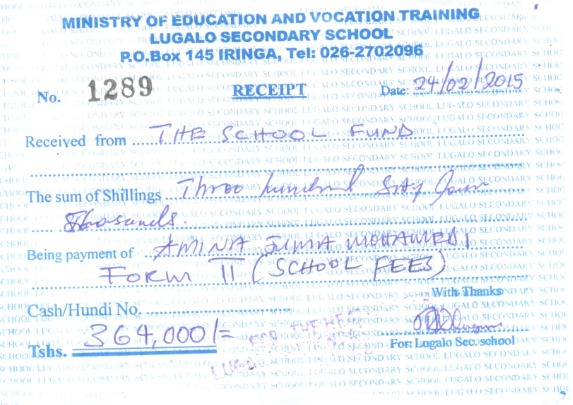 MINISTRY OF EDUCATION AND VOCATION TRAINING
LUGALO SECONDARY SCHOOL
P.O.Box 145 IRINGA, Tel: 026-2702096
No. 1289 RECEIPT Date: 24/02/2015
Received from THE SCHOOL FUND
The sum of Shillings Three hundred Sixty four
thousands.
Being payment of AMINA JUMA MOHAMEDI
FORM II (SCHOOL FEES)
Cash/Hundi No. With Thanks
Tshs. 364,000/= For: Lugalo Sec. school